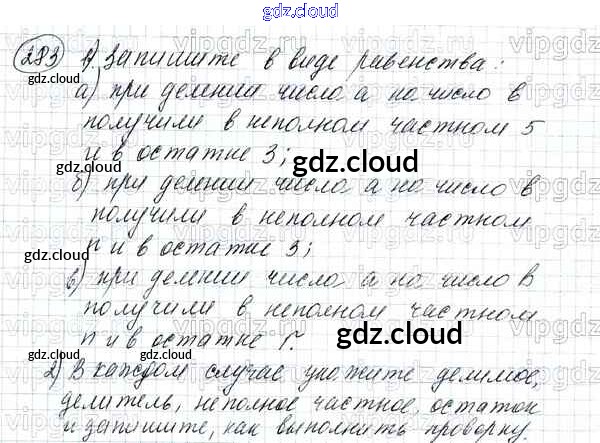 gdz.cloud
283 1) Запишите в виде равенства:
gdz.cloud
а) при делении числа а на число в
получили в неполном частном 5
и в остатке 3;
gdz.cloud
gdz.cloud
б) при делении числа а на число в
получили в неполном частном
n и в остатке 3;
gdz.cloud
gdz.cloud
в) при делении числа а на число в
получили в неполном частном
n и в остатке r.
gdz.cloud
gdz.cloud
2) В каждом случае укажите делимое,
делитель, неполное частное, остаток
и запишите, как выполнить проверку.